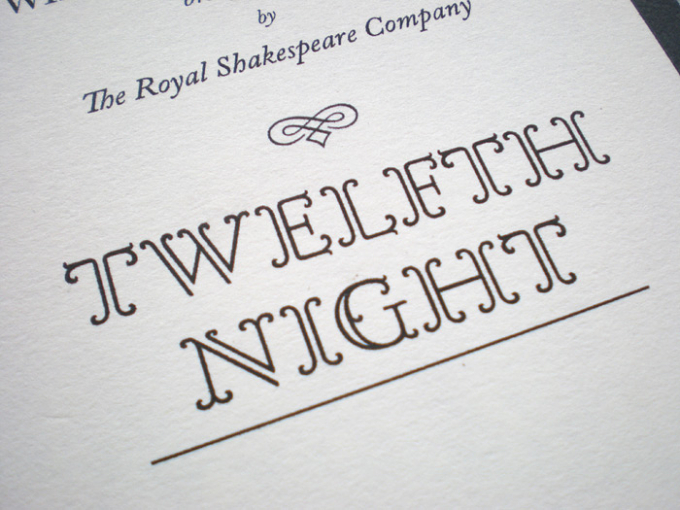 by
The Royal Shakespeare Company
TWELFTH
NIGHT